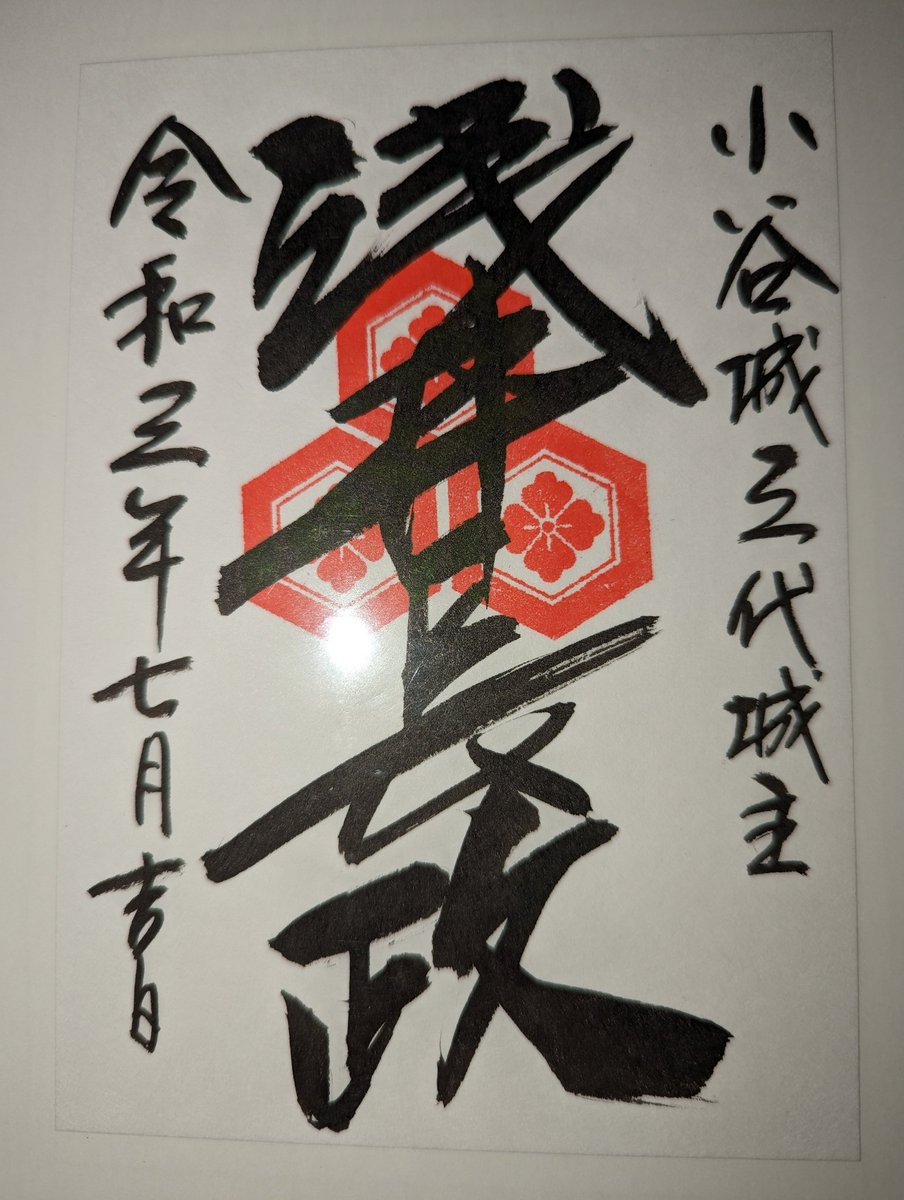 小谷城三代城主
浅井長政
令和三年七月吉日